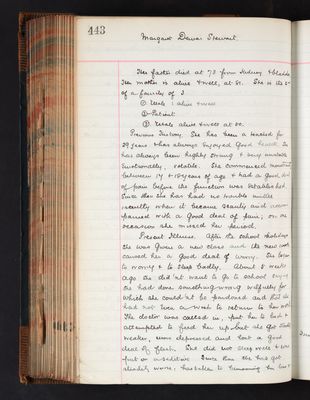 443
Margaret Dewar Stewart.
Her father died at 73 from kidney & bladder
Her mother is alive & well, at 81. She is the 2nd
of a family of 3
① Male : alive & well
② Patient
③ Female alive & well at 50.
Previous History. She has been a teacher for
29 years & has always enjoyed good health. She
has always been highly strung & very
emotionally, volatile. She commenced
between 14 & 15 years of age & had a good deal
of pain before the function was established.
Since then she has had no trouble until
recently when it became scanty and
passed with a good deal of pain; on one
occasion she missed her period.
Present Illness. After the school holidays
she was given a new class and the new work
caused her a good deal of worry. She began
to worry & to sleep badly. About 3 weeks
ago she didn't want to go to school saying
she had done something wrong wilfully for
which she couldn't be pardoned and that she
had not
The doctor was called in, put her to bed &
attempted to feed her up but she got
weaker, more depressed and lost a good
deal of flesh. She did not sleep well &
put on a sedative. Since then she has got
steadily worse, has taken to